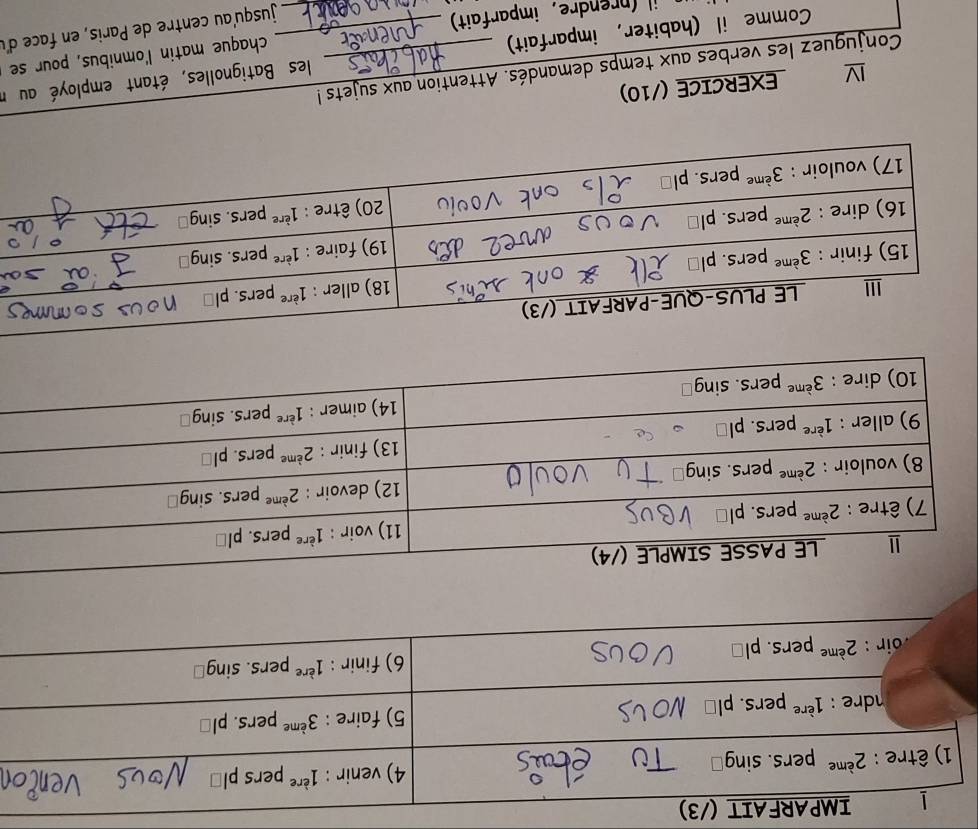 I IMPARFAIT (/3)
1) être : 2ème pers. sing□ Tu étais
4) venir : 1ère pers pl□ Nous
ndre : 1ère pers. pl□ Nous
5) faire : 3ème pers. pl□
oir : 2ème pers. pl□ vous
6) finir : 1ère pers. sing□
II LE PASSE SIMPLE (/4)
7) être : 2ème pers. pl□ vous
11) voir : 1ère pers. pl□
8) vouloir : 2ème pers. sing□ Tu voula
12) devoir : 2ème pers. sing□
9) aller : 1ère pers. pl□
13) finir : 2ème pers. pl□
10) dire : 3ème pers. sing□
14) aimer : 1ère pers. sing□
III LE PLUS-QUE-PARFAIT (/3)
15) finir : 3ème pers. pl□ ont
18) aller : 1ère pers. pl□ nous sommes
16) dire : 2ème pers. pl□ vous avez
19) faire : 1ère pers. sing□
17) vouloir : 3ème pers. pl□ ils ont voulu
20) être : 1ère pers. sing□
IV EXERCICE (/10)
Conjuguez les verbes aux temps demandés. Attention aux sujets !
Comme il (habiter, imparfait) habitais les Batignolles, étant employé au
il (prendre, imparfait) chaque matin l'omnibus, pour se
jusqu'au centre de Paris, en face d'u